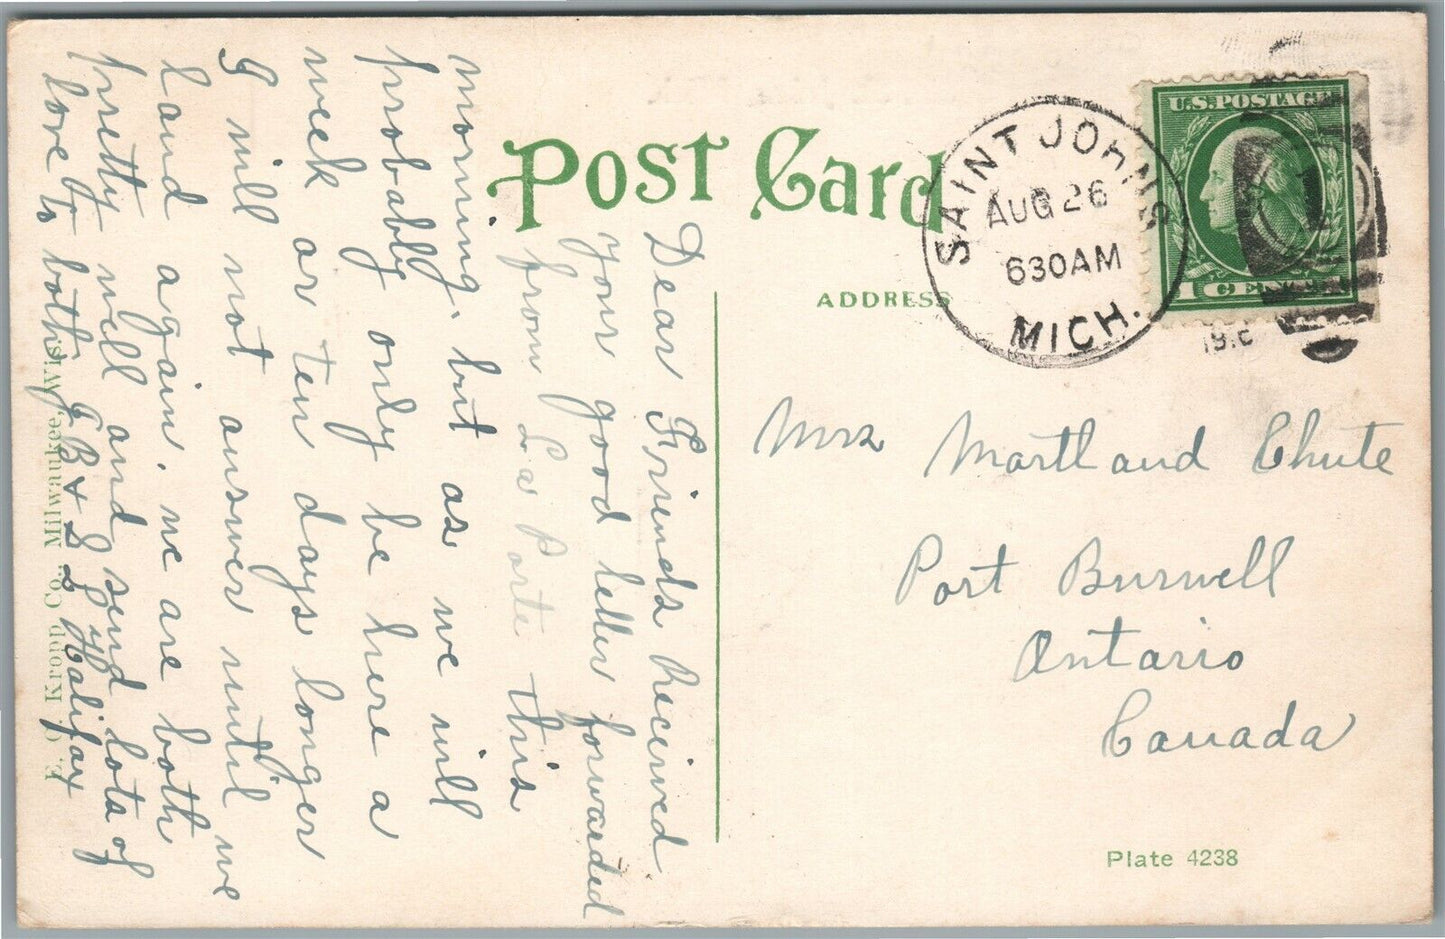 Post Card
ADDRESS
SAINT JOHNS
AUG 26
630AM
MICH.
U.S. POSTAGE
1 CENT
Mrs Martland Chute
Port Burwell
Ontario
Canada
Plate 4238
Dear Friends Received
your good letter forwarded
from La Porte this
morning, but as we will
probably only be here a
week or ten days longer
I will not answer until we
land again. we are both
pretty well and send lots of
love to both. & L Halifax
E. C. Kropp Co., Milwaukee, Wis.